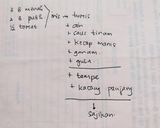 3 B merah
3 B putih } iris → tumis
½ tomat
+ air
+ saus tiram
+ kecap manis
+ garam
+ gula
+ tempe
+ kacang panjang
↓
sajikan